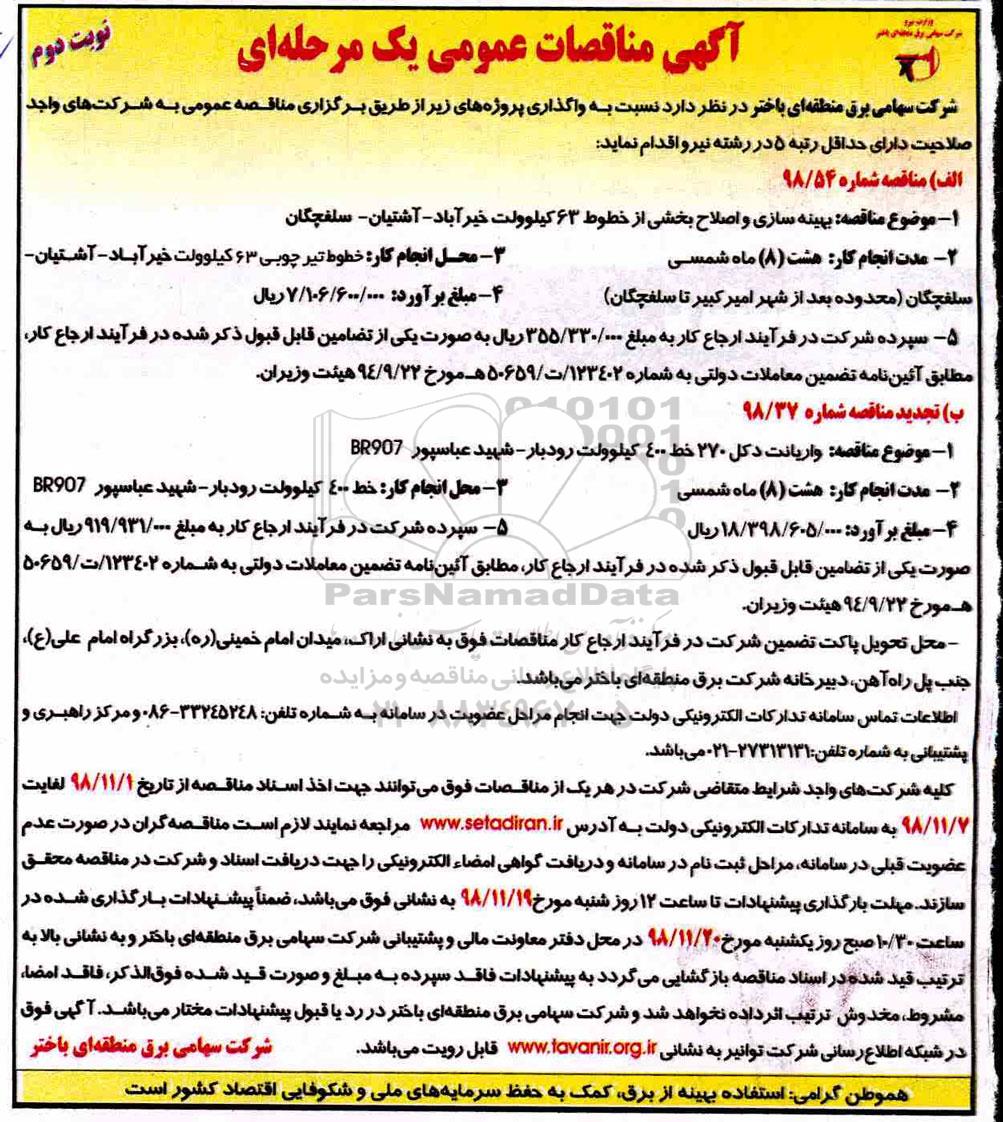 وزارت نیرو
شرکت سهامی برق منطقه‌ای باختر
آگهی مناقصات عمومی یک مرحله‌ای
نوبت دوم
شرکت سهامی برق منطقه‌ای باختر در نظر دارد نسبت به واگذاری پروژه‌های زیر از طریق برگزاری مناقصه عمومی به شرکت‌های واجد
صلاحیت دارای حداقل رتبه ۵ در رشته نیرو اقدام نماید:
الف) مناقصه شماره ۹۸/۵۴
۱- موضوع مناقصه: بهینه سازی و اصلاح بخشی از خطوط ۶۳ کیلوولت خیرآباد- آشتیان- سلفچگان
۲- مدت انجام کار: هشت (۸) ماه شمسی ۳- محل انجام کار: خطوط تیر چوبی ۶۳ کیلوولت خیرآباد- آشتیان-
سلفچگان (محدوده بعد از شهر امیرکبیر تا سلفچگان) ۴- مبلغ برآورد: ۷/۱۰۶/۶۰۰/۰۰۰ ریال
۵- سپرده شرکت در فرآیند ارجاع کار به مبلغ ۳۵۵/۳۳۰/۰۰۰ ریال به صورت یکی از تضامین قابل قبول ذکر شده در فرآیند ارجاع کار،
مطابق آئین‌نامه تضمین معاملات دولتی به شماره ۱۲۳۴۰۲/ت/۵۰۶۵۹ هـ مورخ ۹۴/۹/۲۲ هیئت وزیران.
ب) تجدید مناقصه شماره ۹۸/۳۷
۱- موضوع مناقصه: واریانت دکل ۲۷۰ خط ۴۰۰ کیلوولت رودبار- شهید عباسپور BR907
۲- مدت انجام کار: هشت (۸) ماه شمسی ۳- محل انجام کار: خط ۴۰۰ کیلوولت رودبار- شهید عباسپور BR907
۴- مبلغ برآورد: ۱۸/۳۹۸/۶۰۵/۰۰۰ ریال ۵- سپرده شرکت در فرآیند ارجاع کار به مبلغ ۹۱۹/۹۳۱/۰۰۰ ریال به
صورت یکی از تضامین قابل قبول ذکر شده در فرآیند ارجاع کار، مطابق آئین‌نامه تضمین معاملات دولتی به شماره ۱۲۳۴۰۲/ت/۵۰۶۵۹
هـ مورخ ۹۴/۹/۲۲ هیئت وزیران.
ParsNamadData
- محل تحویل پاکت تضمین شرکت در فرآیند ارجاع کار مناقصات فوق به نشانی اراک، میدان امام خمینی(ره)، بزرگراه امام علی(ع)،
جنب پل راه‌آهن، دبیرخانه شرکت برق منطقه‌ای باختر می‌باشد.
پایگاه اطلاع رسانی مناقصه و مزایده
اطلاعات تماس سامانه تدارکات الکترونیکی دولت جهت انجام مراحل عضویت در سامانه به شماره تلفن: ۳۳۲۴۵۲۴۸-۰۸۶ و مرکز راهبری و
پشتیبانی به شماره تلفن: ۲۷۳۱۳۱۳۱-۰۲۱ می‌باشد.
کلیه شرکت‌های واجد شرایط متقاضی شرکت در هر یک از مناقصات فوق می‌توانند جهت اخذ اسناد مناقصه از تاریخ ۹۸/۱۱/۱ لغایت
۹۸/۱۱/۷ به سامانه تدارکات الکترونیکی دولت به آدرس www.setadiran.ir مراجعه نمایند لازم است مناقصه‌گران در صورت عدم
عضویت قبلی در سامانه، مراحل ثبت نام در سامانه و دریافت گواهی امضاء الکترونیکی را جهت دریافت اسناد و شرکت در مناقصه محقق
سازند. مهلت بارگذاری پیشنهادات تا ساعت ۱۲ روز شنبه مورخ ۹۸/۱۱/۱۹ به نشانی فوق می‌باشد، ضمناً پیشنهادات بارگذاری شده در
ساعت ۱۰/۳۰ صبح روز یکشنبه مورخ ۹۸/۱۱/۲۰ در محل دفتر معاونت مالی و پشتیبانی شرکت سهامی برق منطقه‌ای باختر و به نشانی بالا به
ترتیب قید شده در اسناد مناقصه بازگشایی می‌گردد به پیشنهادات فاقد سپرده به مبلغ و صورت قید شده فوق‌الذکر، فاقد امضا،
مشروط، مخدوش ترتیب اثر داده نخواهد شد و شرکت سهامی برق منطقه‌ای باختر در رد یا قبول پیشنهادات مختار می‌باشد. آگهی فوق
در شبکه اطلاع‌رسانی شرکت توانیر به نشانی www.tavanir.org.ir قابل رویت می‌باشد. شرکت سهامی برق منطقه‌ای باختر
هموطن گرامی: استفاده بهینه از برق، کمک به حفظ سرمایه‌های ملی و شکوفایی اقتصاد کشور است